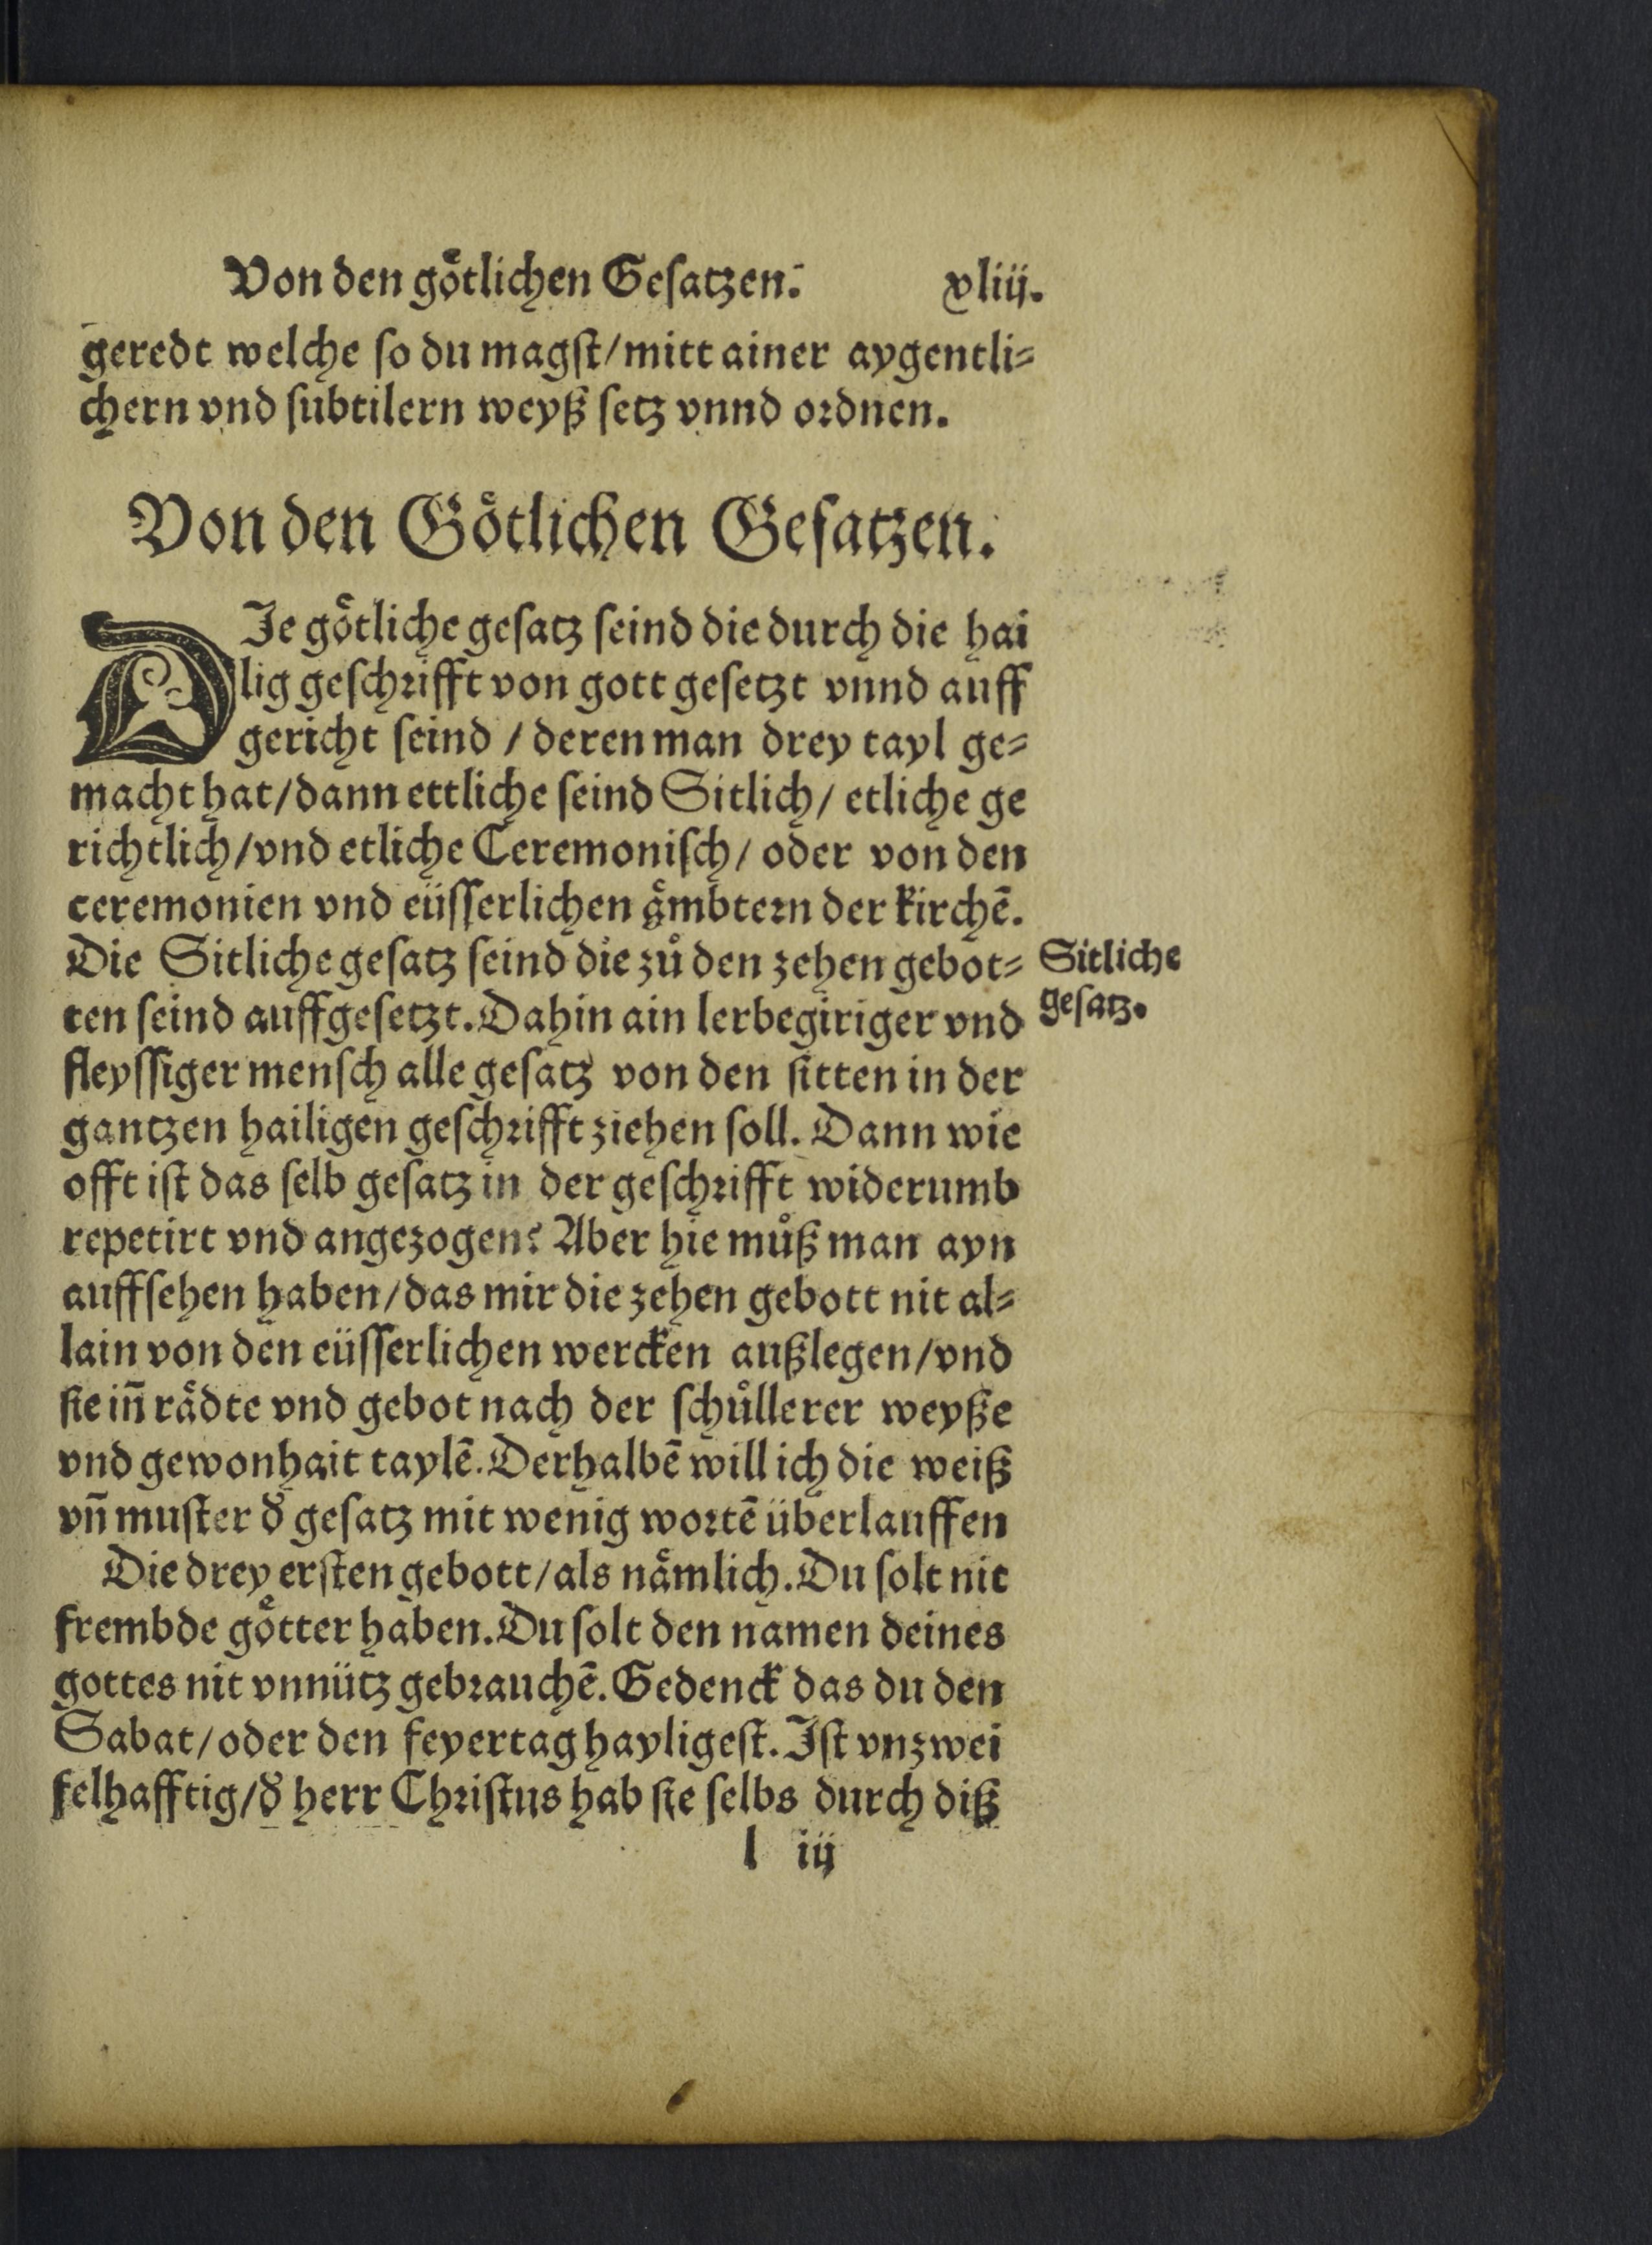 Von den goͤtlichen Geſatzen. xliij.
geredt welche ſo du magſt/mitt ainer aygentli⸗
chern vnd ſubtilern weyß ſetz vnnd ordnen.
Von den Goͤtlichen Geſatzen.
DIe goͤtliche geſatz ſeind die durch die hai
lig geſchrifft von gott geſetzt vnnd auff
gericht ſeind / deren man drey tayl ge⸗
macht hat/dann ettliche ſeind Sitlich/ etliche ge
richtlich/vnd etliche Ceremoniſch/ oder von den
ceremonien vnd eüſſerlichen aͤmbtern der kirchē.
Die Sitliche geſatz ſeind die zuͦ den zehen gebot⸗
ten ſeind auffgeſetzt. Dahin ain lerbegiriger vnd
fleyſſiger menſch alle geſatz von den ſitten in der
gantzen hailigen geſchrifft ziehen ſoll. Dann wie
offt iſt das ſelb geſatz in der geſchrifft widerumb
repetirt vnd angezogen? Aber hie muͦß man ayn
auffſehen haben/das mir die zehen gebott nit al⸗
lain von den eüſſerlichen wercken außlegen/vnd
ſie in̄ raͤdte vnd gebot nach der ſchuͦllerer weyße
vnd gewonhait taylē. Derhalbē will ich die weiß
vn̄ muſter d̕ geſatz mit wenig wortē überlauffen
Die drey erſten gebott/als naͤmlich. Du ſolt nit
frembde goͤtter haben. Du ſolt den namen deines
gottes nit vnnütz gebrauchē. Gedenck das du den
Sabat/oder den feyertag hayligeſt. Iſt vnzwei
felhafftig/d̕ herr Chriſtus hab ſie ſelbs durch diß
l iij
Sitliche
geſatz.